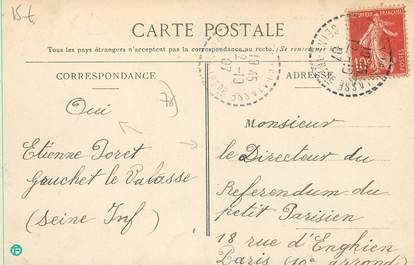 15€
CARTE POSTALE
Tous les pays étrangers n'acceptent pas la correspondance au recto.
CORRESPONDANCE
ADRESSE
10c
Oui
Etienne Poret
Gruchet le Valasse
(Seine Inf)
Monsieur
le Directeur du
Referendum du
petit Parisien
18 rue d'Enghien
Paris (10e arrond)